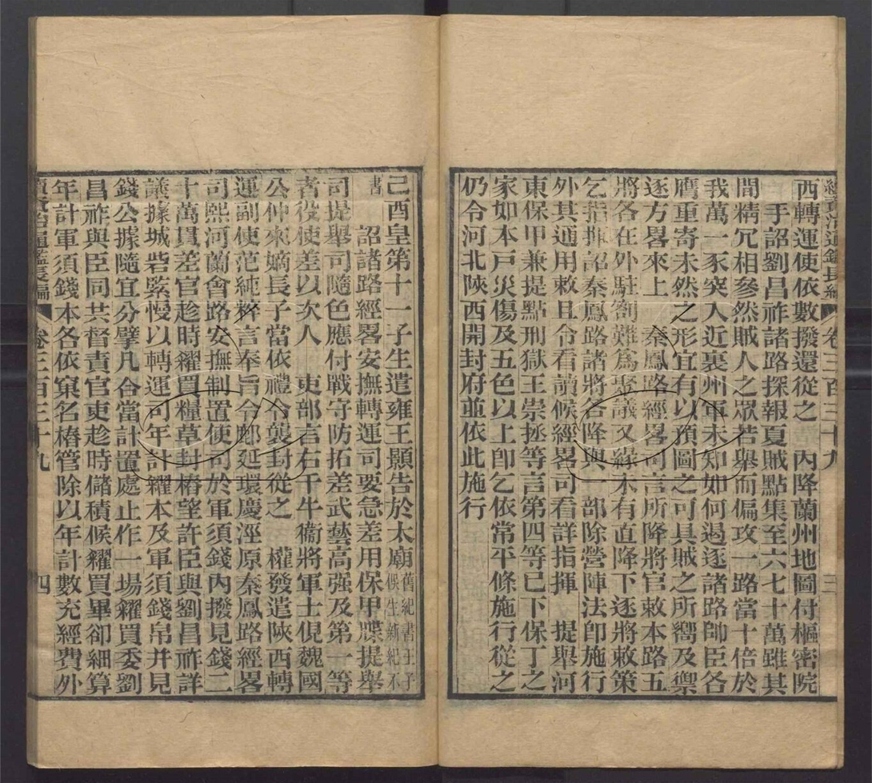 續資治通鑑長編 卷三百三十九 三
西轉運使依數撥還從之 內降蘭州地圖付樞密院
手詔劉昌祚諸路探報夏賊點集至六七十萬雖其
間精冗相參然賊人之眾若舉而偏攻一路當十倍於
我萬一豕突入近裏州軍未知如何遏逐諸路帥臣各
膺重寄未然之形宜有以預圖之可具賊之所嚮及禦
逐方畧來上 秦鳳路經畧司言所降將官敕本路五
將各在外駐劄難為聚議又緣未有直降下逐將敕策
乞指揮詔秦鳳路諸將各降與一部除營陣法即施行
外其通用敕且令看讀候經畧司看詳指揮 提舉河
東保甲兼提點刑獄王崇拯等言第四等已下保丁之
家如本戸災傷及五色以上卽乞依常平條施行從之
仍令河北陝西開封府並依此施行
己酉皇第十一子生遣雍王顥告於太廟舊紀書王子俟生新紀不
書 詔諸路經畧安撫轉運司要急差用保甲牒提舉
司提舉司隨色應付戰守防拓差武藝高强及第一等
者役使差以次人 吏部言右千牛衞將軍士俔魏國
公仲來嫡長子當依禮令襲封從之 權發遣陝西轉
運副使范純粹言奉旨令鄜延環慶涇原秦鳳路經畧
司熙河蘭會路安撫制置使司於軍須錢內撥見錢二
十萬貫差官趁時糴買糧草封樁望許臣與劉昌祚詳
議據城砦緊慢以轉運司年計糴本及軍須錢帛并見
錢公據隨宜分擘凡合當計置處止作一場糴買委劉
昌祚與臣同共督責官吏趁時儲積候糴買畢卻細算
年計軍須錢本各依窠名樁管除以年計數充經費外
續資治通鑑長編 卷三百三十九 四